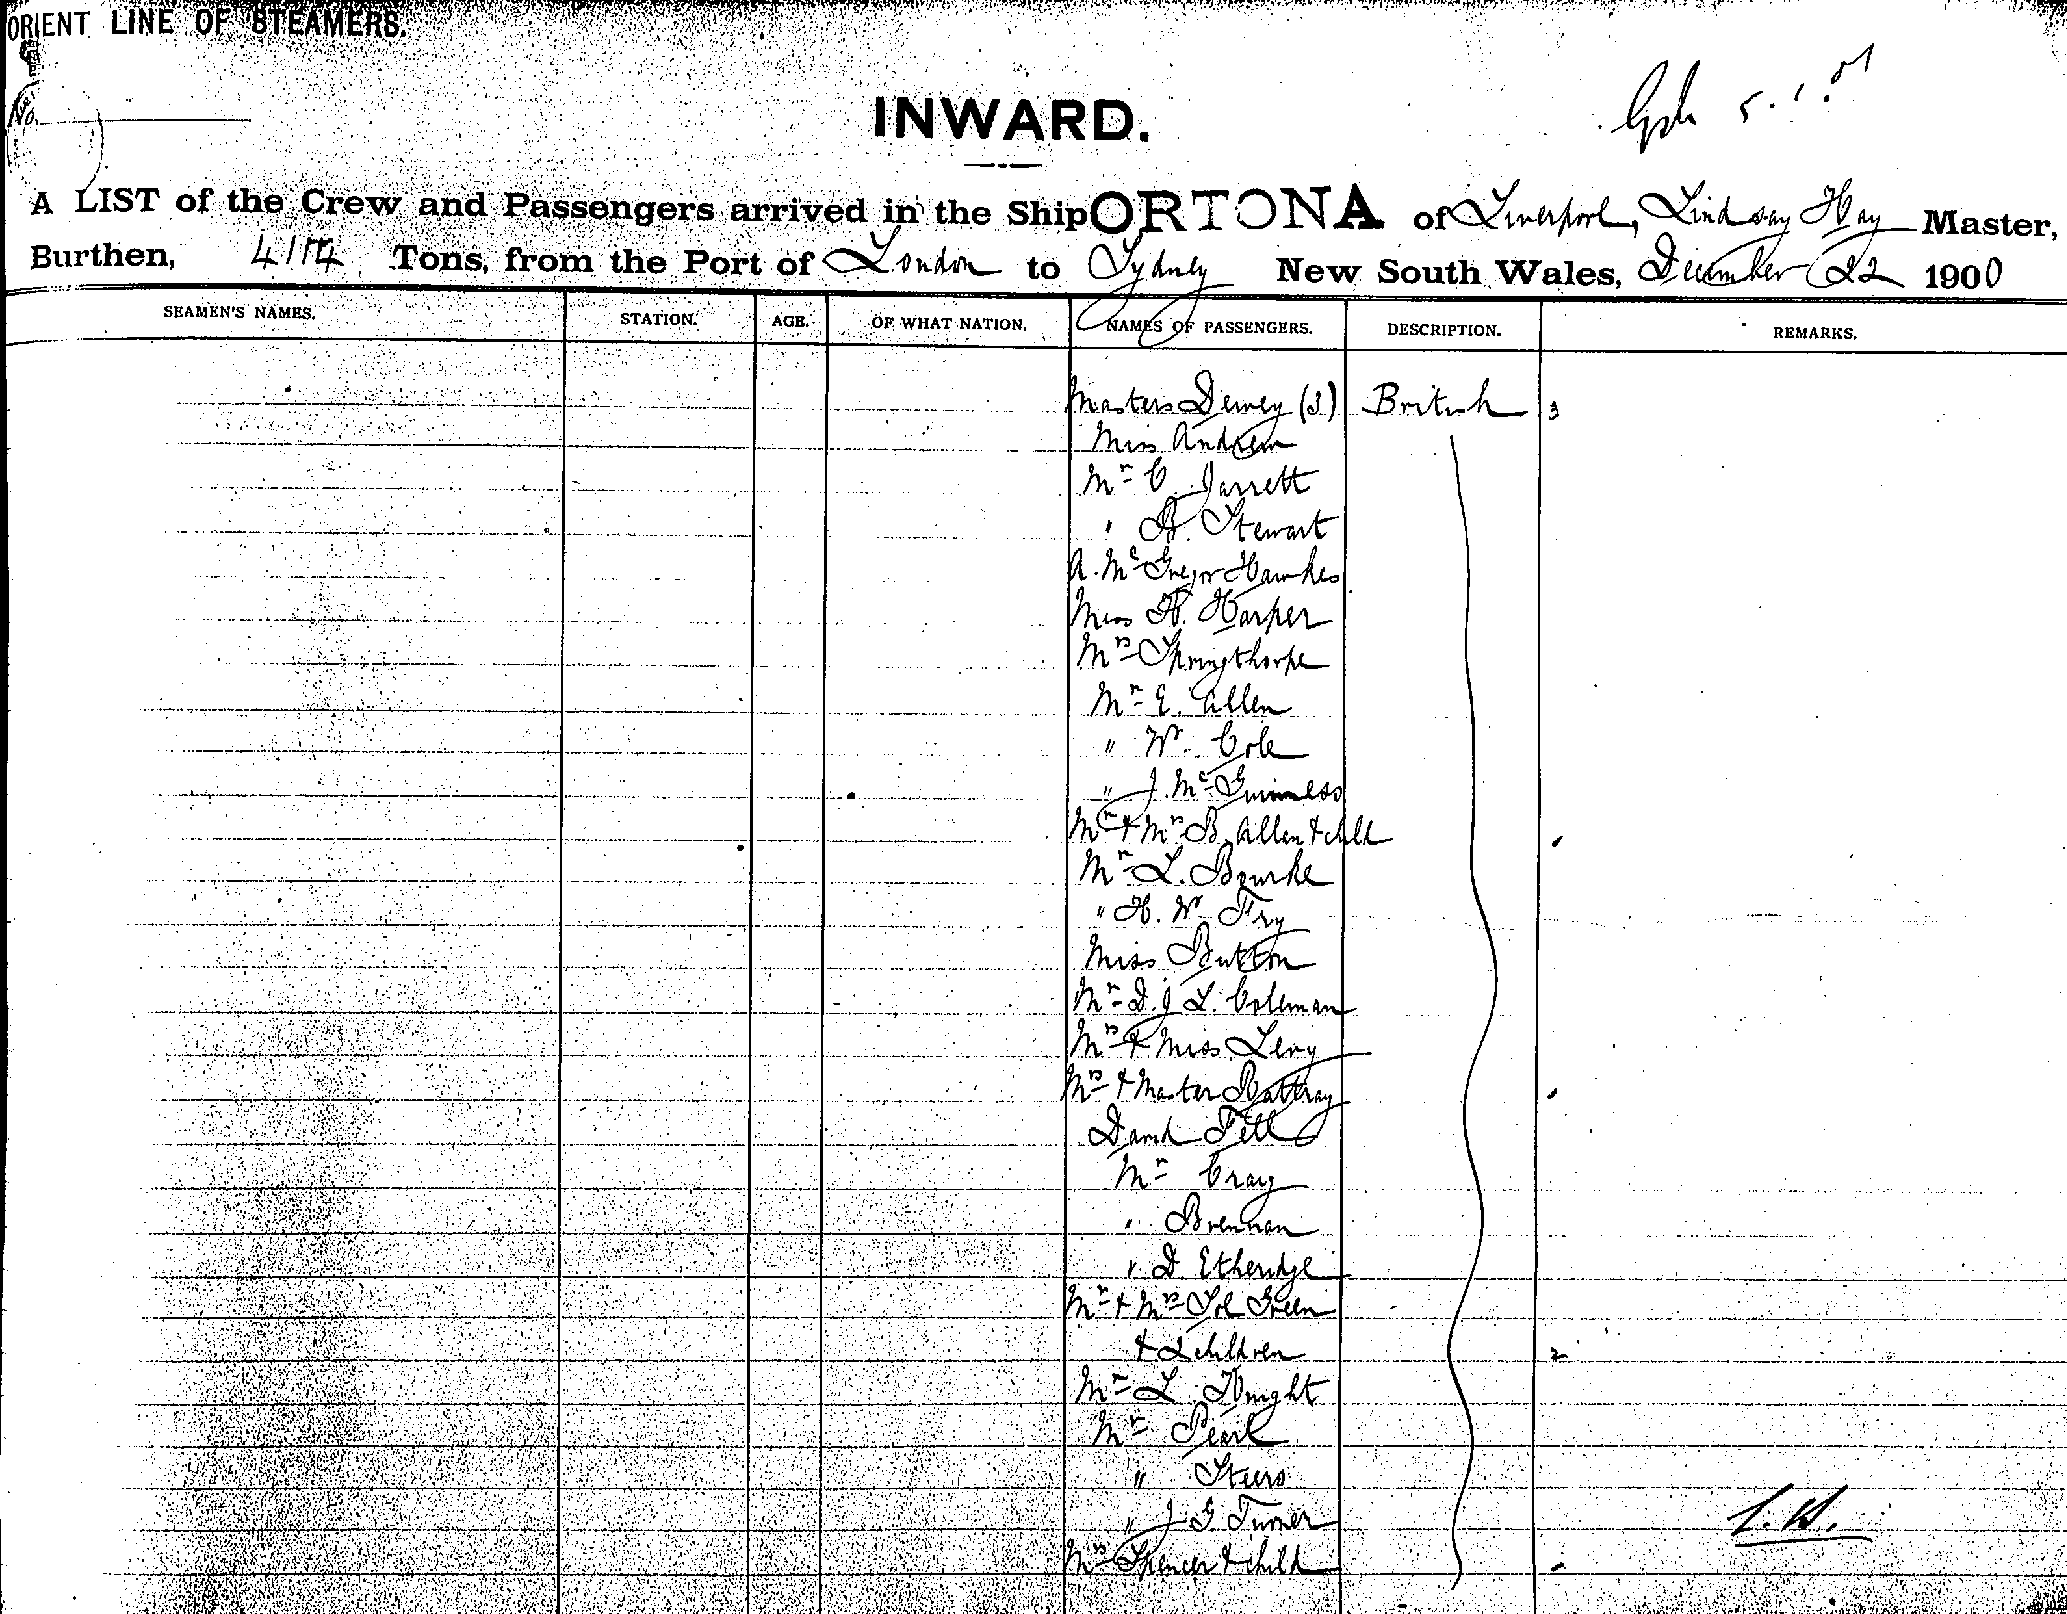 ORIENT LINE OF STEAMERS.
No.
5.1.01
INWARD.
A LIST of the Crew and Passengers arrived in the Ship ORTONA of Liverpool, Lindsay Hay Master,
Burthen, Tons, from the Port of London to Sydney New South Wales, December 22 1900
SEAMEN'S NAMES. STATION. AGE. OF WHAT NATION. NAMES OF PASSENGERS. DESCRIPTION. REMARKS.
Masters Dewey (3) British 3
Miss Andrew
Mr C. Jarrett
" Stewart
A. McGregor Hawkes
Miss H. Harper
Mrs Springthorpe
Mr E. Allen
" W. Cole
" J. McGuinness
Mr & Mrs B. Allen & child
Mr L. Bourke
" H. W. Fry
Miss Button
Mr D. J. L. Coleman
Mrs & Miss Levy
Mrs & Master Rattray
David Fell
Mr Craig
" Brennan
" D. Etheridge
Mr & Mrs Sol Green
& 2 children 2
Mr L. Knight
Mr Pearl
" Steers
" J. G. Turner
Mrs Spencer & child
L.H.